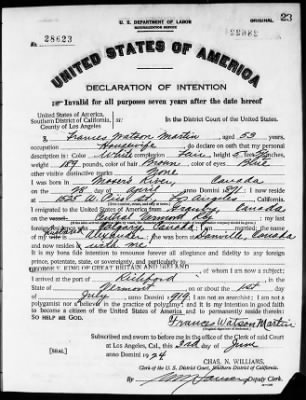 U. S. DEPARTMENT OF LABOR
NATURALIZATION SERVICE
ORIGINAL 23
No. 28623
UNITED STATES OF AMERICA
DECLARATION OF INTENTION
Invalid for all purposes seven years after the date hereof
United States of America,
Southern District of California, ss:
County of Los Angeles
In the District Court of the United States.
I, Frances Watson Martin, aged 53 years,
occupation Housewife, do declare on oath that my personal
description is: Color White, complexion Fair, height 5 feet inches,
weight 189 pounds, color of hair Brown, color of eyes Blue
other visible distinctive marks None
I was born in Moser's River, Canada
on the day of April, anno Domini 1871; I now reside
at 1525 W. First St., Los Angeles
I emigrated to the United States of America from Granby, Canada
on the vessel Central Vermont Rly; my last
foreign residence was Calgary, Canada; I am married; the name
of my husband is Alexander; he was born at Danville, Canada
and now resides at with me
It is my bona fide intention to renounce forever all allegiance and fidelity to any foreign
prince, potentate, state, or sovereignty, and particularly to
GEORGE V, KING OF GREAT BRITAIN AND IRELAND
, of whom I am now a subject;
I arrived at the port of Richford, in the
State of Vermont, on or about the 1st day
of July, anno Domini 1919; I am not an anarchist; I am not a
polygamist nor a believer in the practice of polygamy; and it is my intention in good faith
to become a citizen of the United States of America and to permanently reside therein:
SO HELP ME GOD.
Frances Watson Martin
Subscribed and sworn to before me in the office of the Clerk of said Court
at Los Angeles, Cal., this 2nd day of June
anno Domini 1924
[SEAL]
CHAS. N. WILLIAMS,
Clerk of the U. S. District Court, Southern District of California.
By Deputy Clerk.